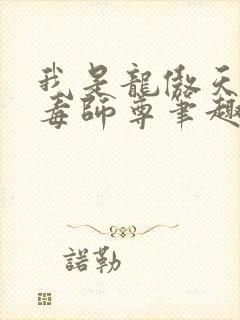 我是龍傲天
毒師尊筆趣
諾勒